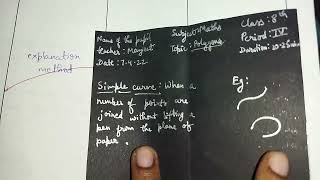 explanation
method
Name of the pupil
Subject: Maths
Class: 8th
teacher: Manjeet
Topic: Polygons
Period: IV
Date: 7-4-22
Duration: 20-25
Simple curve: When a
number of points are
joined without lifting a
pen from the plane of
paper.
Eg: